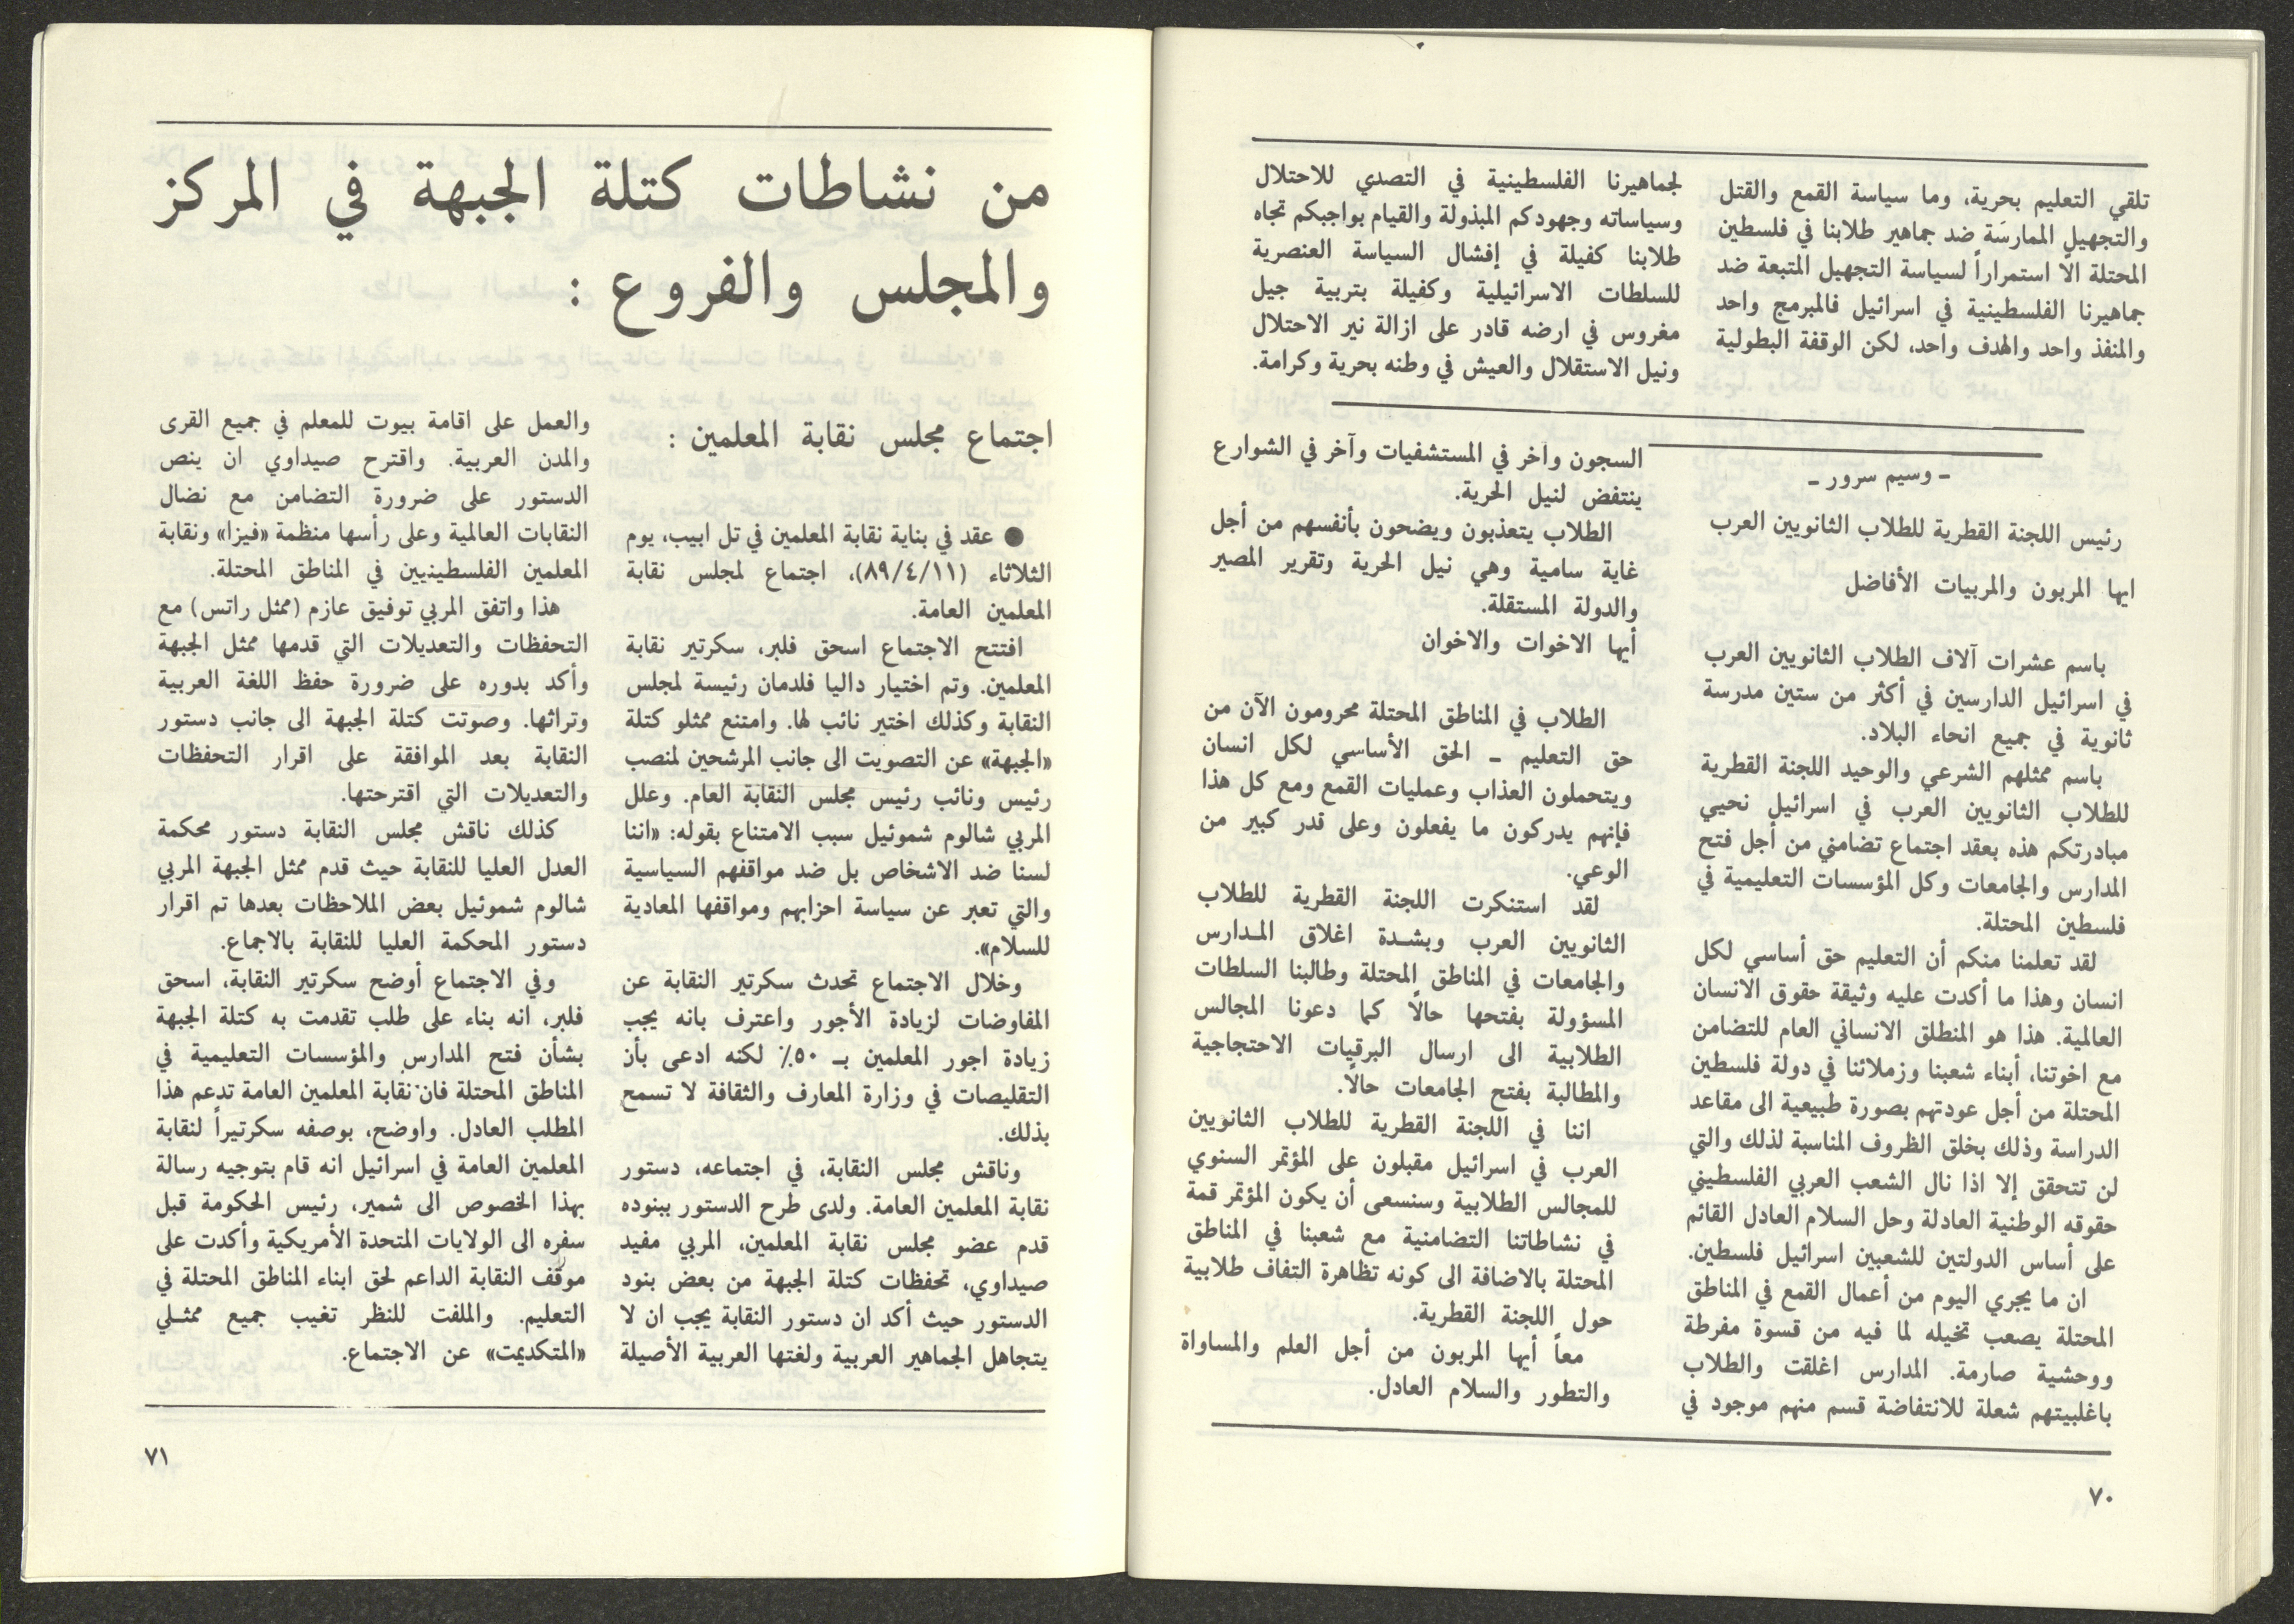 تلقي التعليم بحرية، وما سياسة القمع والقتل
والتجهيل الممارسَة ضد جماهير طلابنا في فلسطين
المحتلة الاّ استمراراً لسياسة التجهيل المتبعة ضد
جماهيرنا الفلسطينية في اسرائيل فالمبرمج واحد
والمنفذ واحد والهدف واحد، لكن الوقفة البطولية
لجماهيرنا الفلسطينية في التصدي للاحتلال
وسياساته وجهودكم المبذولة والقيام بواجبكم تجاه
طلابنا كفيلة في إفشال السياسة العنصرية
للسلطات الاسرائيلية وكفيلة بتربية جيل
مغروس في ارضه قادر على ازالة نير الاحتلال
ونيل الاستقلال والعيش في وطنه بحرية وكرامة.
ـ وسيم سرور ـ
رئيس اللجنة القطرية للطلاب الثانويين العرب
ايها المربون والمربيات الأفاضل
باسم عشرات آلاف الطلاب الثانويين العرب
في اسرائيل الدارسين في أكثر من ستين مدرسة
ثانوية في جميع انحاء البلاد.
باسم ممثلهم الشرعي والوحيد اللجنة القطرية
للطلاب الثانويين العرب في اسرائيل نحيي
مبادرتكم هذه بعقد اجتماع تضامني من أجل فتح
المدارس والجامعات وكل المؤسسات التعليمية في
فلسطين المحتلة.
لقد تعلمنا منكم أن التعليم حق أساسي لكل
انسان وهذا ما أكدت عليه وثيقة حقوق الانسان
العالمية. هذا هو المنطلق الانساني العام للتضامن
مع اخوتنا، أبناء شعبنا وزملائنا في دولة فلسطين
المحتلة من أجل عودتهم بصورة طبيعية الى مقاعد
الدراسة وذلك بخلق الظروف المناسبة لذلك والتي
لن تتحقق إلا اذا نال الشعب العربي الفلسطيني
حقوقه الوطنية العادلة وحل السلام العادل القائم
على أساس الدولتين للشعبين اسرائيل فلسطين.
ان ما يجري اليوم من أعمال القمع في المناطق
المحتلة يصعب تخيله لما فيه من قسوة مفرطة
ووحشية صارمة. المدارس اغلقت والطلاب
باغلبيتهم شعلة للانتفاضة قسم منهم موجود في
السجون وآخر في المستشفيات وآخر في الشوارع
ينتفض لنيل الحرية.
الطلاب يتعذبون ويضحون بأنفسهم من أجل
غاية سامية وهي نيل الحرية وتقرير المصير
والدولة المستقلة.
أيها الاخوات والاخوان
الطلاب في المناطق المحتلة محرومون الآن من
حق التعليم ـ الحق الأساسي لكل انسان
ويتحملون العذاب وعمليات القمع ومع كل هذا
فإنهم يدركون ما يفعلون وعلى قدر كبير من
الوعي.
لقد استنكرت اللجنة القطرية للطلاب
الثانويين العرب وبشـدة اغلاق المـدارس
والجامعات في المناطق المحتلة وطالبنا السلطات
المسؤولة بفتحها حالاً كما دعونا المجالس
الطلابية الى ارسال البرقيات الاحتجاجية
والمطالبة بفتح الجامعات حالاً.
اننا في اللجنة القطرية للطلاب الثانويين
العرب في اسرائيل مقبلون على المؤتمر السنوي
للمجالس الطلابية وسنسعى أن يكون المؤتمر قمة
في نشاطاتنا التضامنية مع شعبنا في المناطق
المحتلة بالاضافة الى كونه تظاهرة التفاف طلابية
حول اللجنة القطرية.
معاً أيها المربون من أجل العلم والمساواة
والتطور والسلام العادل.
٧٠
من نشاطات كتلة الجبهة في المركز
والمجلس والفروع :
اجتماع مجلس نقابة المعلمين :
● عقد في بناية نقابة المعلمين في تل ابيب، يوم
الثلاثاء (٨٩/٤/١١)، اجتماع لمجلس نقابة
المعلمين العامة.
افتتح الاجتماع اسحق فلبر، سكرتير نقابة
المعلمين. وتم اختيار داليا فلدمان رئيسة لمجلس
النقابة وكذلك اختير نائب لها. وامتنع ممثلو كتلة
«الجبهة» عن التصويت الى جانب المرشحين لمنصب
رئيس ونائب رئيس مجلس النقابة العام. وعلل
المربي شالوم شموئيل سبب الامتناع بقوله: «اننا
لسنا ضد الاشخاص بل ضد مواقفهم السياسية
والتي تعبر عن سياسة احزابهم ومواقفها المعادية
للسلام».
وخلال الاجتماع تحدث سكرتير النقابة عن
المفاوضات لزيادة الأجور واعترف بانه يجب
زيادة اجور المعلمين بـ ٥٠٪ لكنه ادعى بأن
التقليصات في وزارة المعارف والثقافة لا تسمح
بذلك.
وناقش مجلس النقابة، في اجتماعه، دستور
نقابة المعلمين العامة. ولدى طرح الدستور ببنوده
قدم عضو مجلس نقابة المعلمين، المربي مفيد
صيداوي، تحفظات كتلة الجبهة من بعض بنود
الدستور حيث أكد ان دستور النقابة يجب ان لا
يتجاهل الجماهير العربية ولغتها العربية الأصيلة
والعمل على اقامة بيوت للمعلم في جميع القرى
والمدن العربية. واقترح صيداوي ان ينص
الدستور على ضرورة التضامن مع نضال
النقابات العالمية وعلى رأسها منظمة «فيزا» ونقابة
المعلمين الفلسطينيين في المناطق المحتلة.
هذا واتفق المربي توفيق عازم (ممثل راتس) مع
التحفظات والتعديلات التي قدمها ممثل الجبهة
وأكد بدوره على ضرورة حفظ اللغة العربية
وتراثها. وصوتت كتلة الجبهة الى جانب دستور
النقابة بعد الموافقة على اقرار التحفظات
والتعديلات التي اقترحتها.
كذلك ناقش مجلس النقابة دستور محكمة
العدل العليا للنقابة حيث قدم ممثل الجبهة المربي
شالوم شموئيل بعض الملاحظات بعدها تم اقرار
دستور المحكمة العليا للنقابة بالاجماع.
وفي الاجتماع أوضح سكرتير النقابة، اسحق
فلبر، انه بناء على طلب تقدمت به كتلة الجبهة
بشأن فتح المدارس والمؤسسات التعليمية في
المناطق المحتلة فان نقابة المعلمين العامة تدعم هذا
المطلب العادل. واوضح، بوصفه سكرتيراً لنقابة
المعلمين العامة في اسرائيل انه قام بتوجيه رسالة
بهذا الخصوص الى شمير، رئيس الحكومة قبل
سفره الى الولايات المتحدة الأمريكية وأكدت على
موقف النقابة الداعم لحق ابناء المناطق المحتلة في
التعليم. والملفت للنظر تغيب جميع ممثـلي
«المتكديمت» عن الاجتماع.
٧١